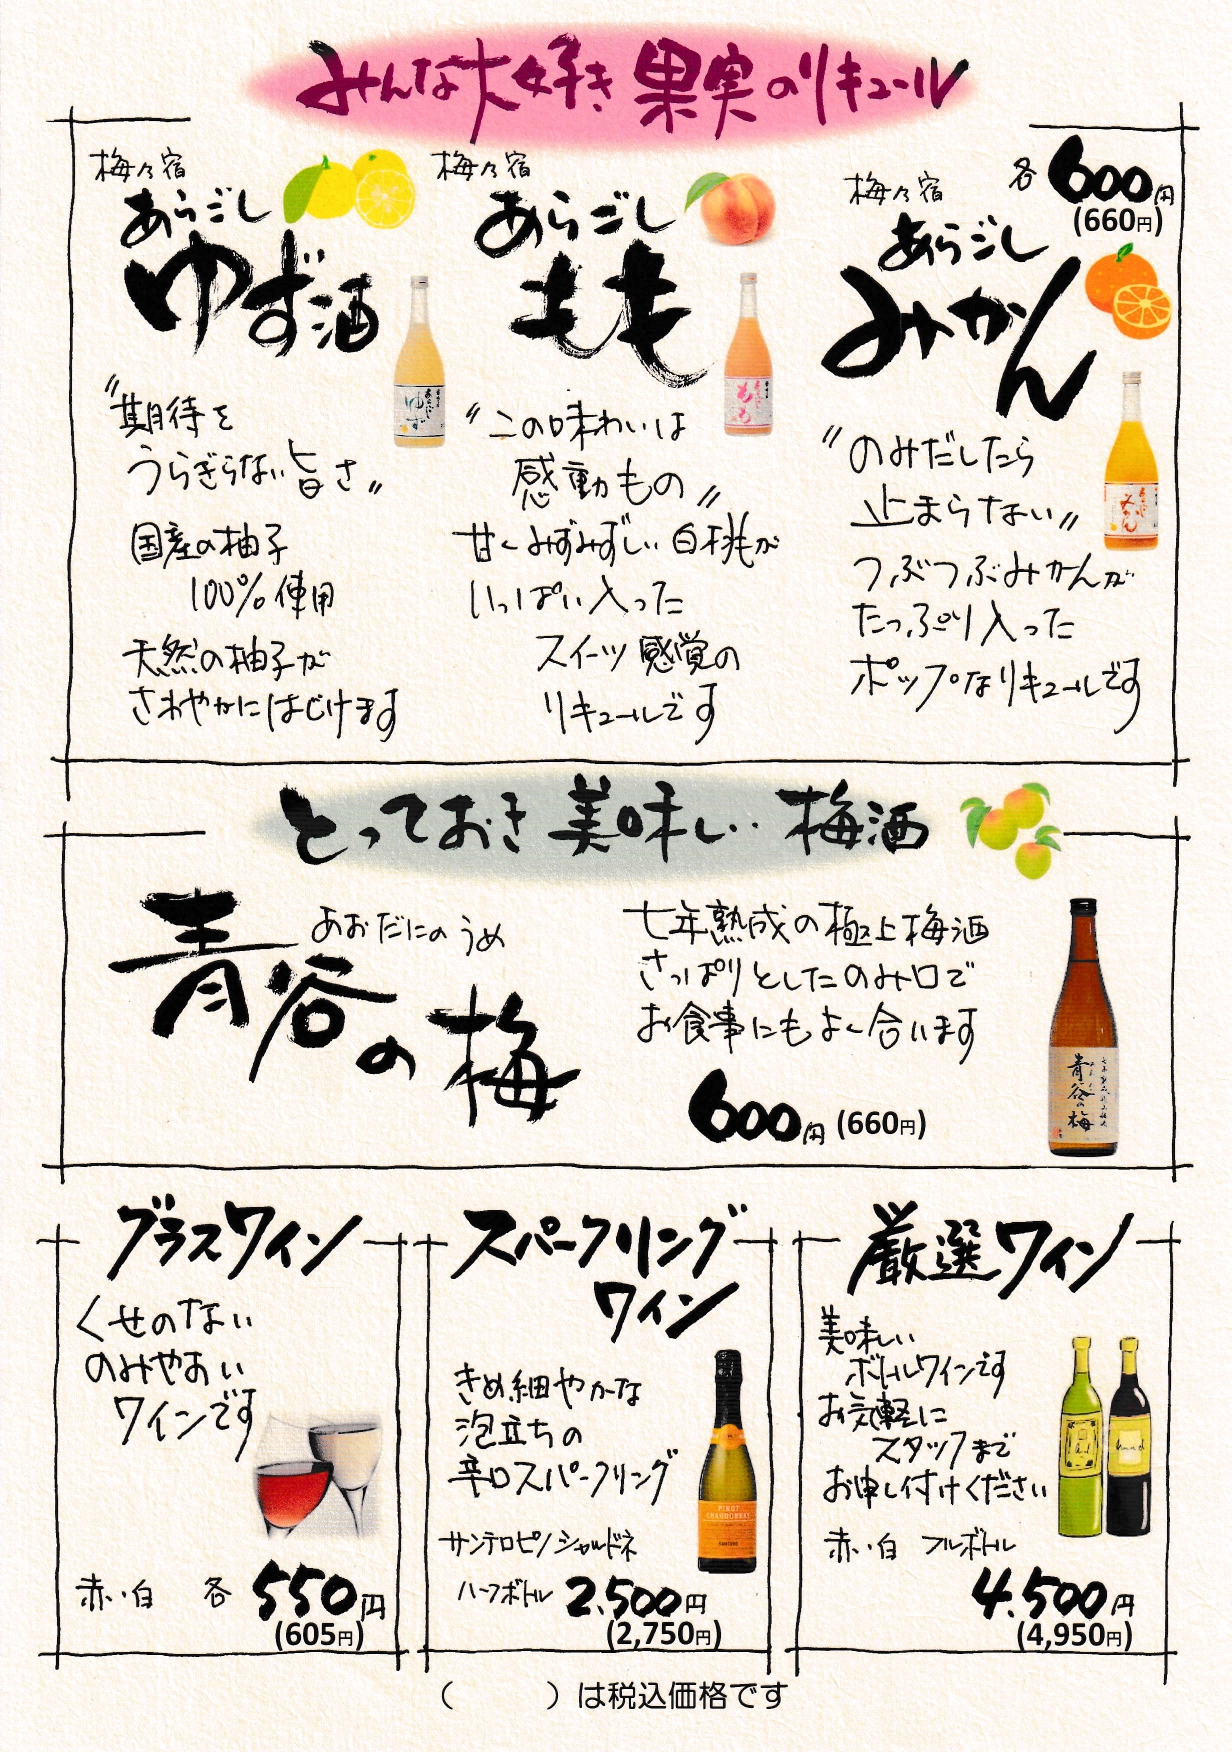 みんな大好き 果実のリキュール
各 600円
(660円)
梅乃宿
あらごし
ゆず酒
あらごし
ゆず
〝期待を
うらぎらない旨さ〟
国産の柚子
100%使用
天然の柚子が
さわやかにはじけます
梅乃宿
あらごし
もも
もも
〝この味わいは
感動もの〟
甘くみずみずしい白桃が
いっぱい入った
スイーツ感覚の
リキュールです
梅乃宿
あらごし
みかん
みかん
〝のみだしたら
止まらない〟
つぶつぶみかんが
たっぷり入った
ポップなリキュールです
とっておき美味しい梅酒
青谷の梅
あおだにのうめ
七年熟成の極上梅酒
さっぱりとしたのみ口で
お食事にもよく合います
600円 (660円)
青谷の梅
グラスワイン
くせのない
のみやすい
ワインです
赤・白 各 550円
(605円)
スパークリング
ワイン
きめ細やかな
泡立ちの
辛口スパークリング
サンテロ ピノ シャルドネ
ハーフボトル 2.500円
(2,750円)
PINOT
CHARDONNAY
厳選ワイン
美味しい
ボトルワインです
お気軽に
スタッフまで
お申し付けください
赤・白 フルボトル
4.500円
(4,950円)
（　　　）は税込価格です